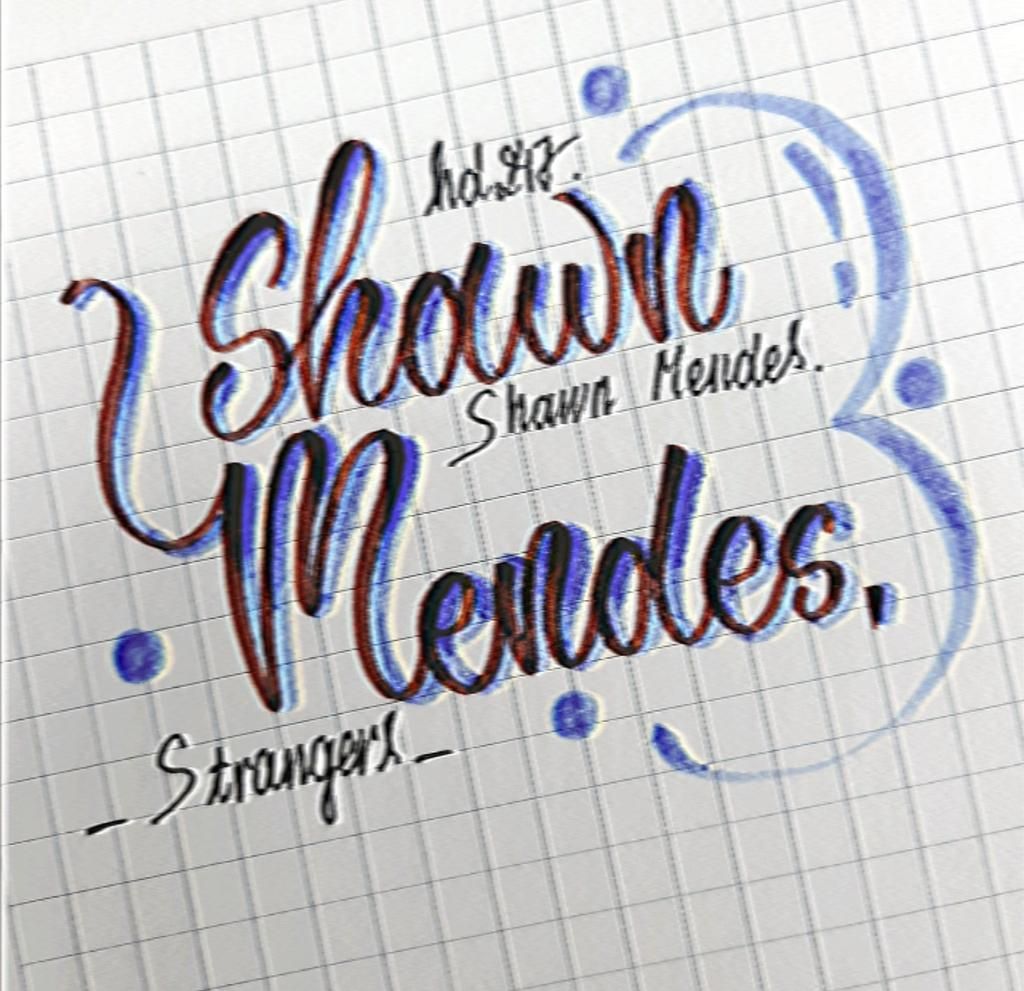 Shawn
Shawn Mendes.
Mendes.
_Strangers_